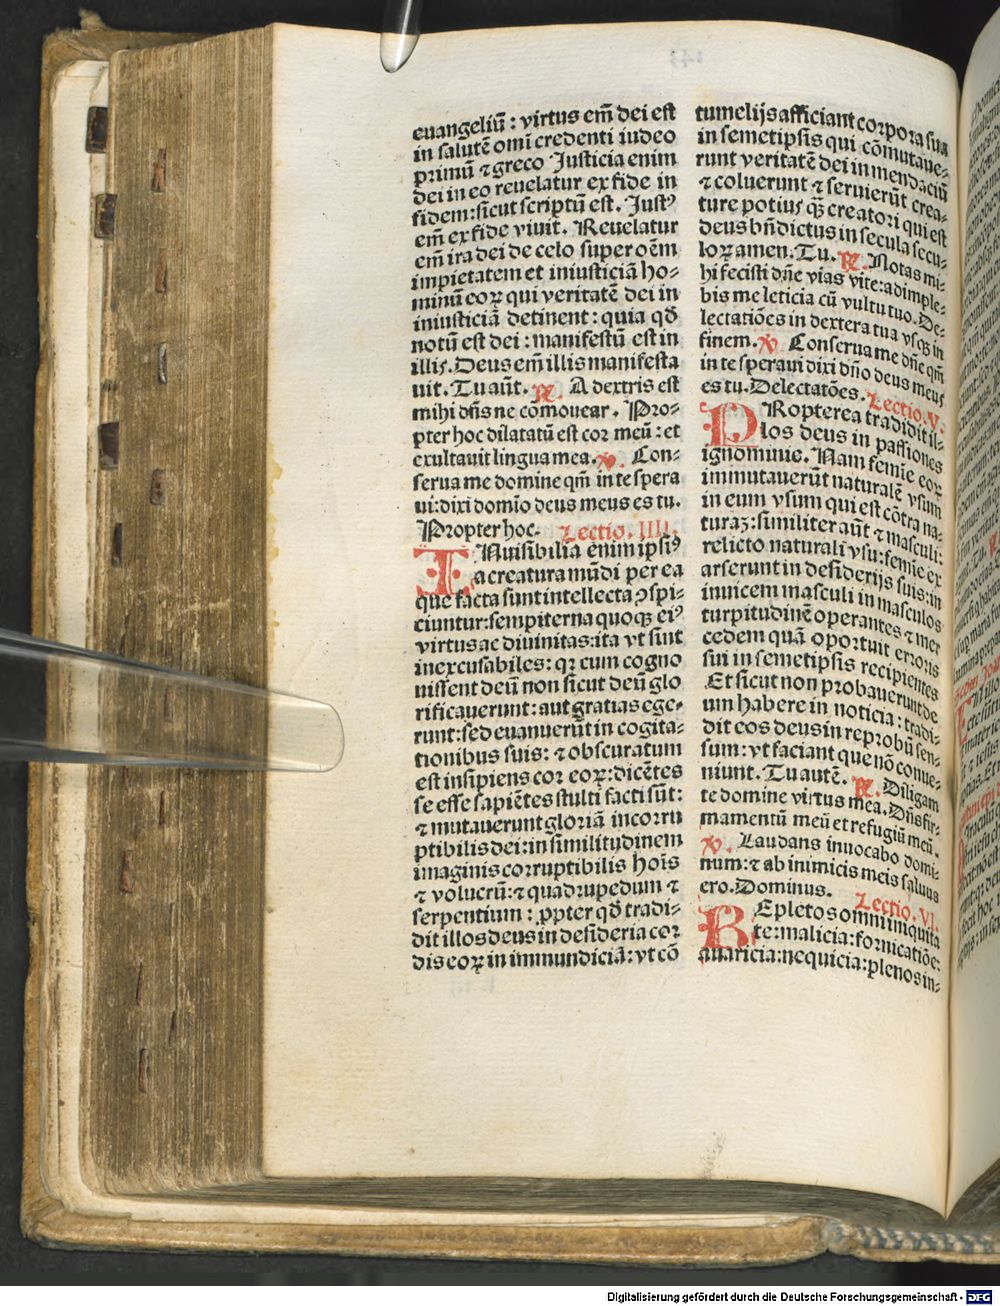 euangeliū: virtus em̄ dei est
in salutē omī credenti iudeo
primū ⁊ greco Iusticia enim
dei in eo reuelatur ex fide in
fidem: sicut scriptū est. Iustꝰ
em̄ ex fide viuit. Reuelatur
em̄ ira dei de celo super oēm
impietatem et iniusticiā ho⸗
minū eoꝝ qui veritatē dei in
iniusticiā detinent: quia qd̄
notū est dei: manifestū est in
illis. Deus em̄ illis manifesta
uit. Tu aūt. ℟. A dextris est
mihi dn̄s ne comouear. Pro⸗
pter hoc dilatatū est cor meū: et
exultauit lingua mea. ℣. Con⸗
serua me domine qm̄ in te spera
ui: dixi domīo deus meus es tu.
Propter hoc. Lectio. IIII.
INuisibilia enim ipsiꝰ
a creatura mūdi per ea
que facta sunt intellecta ꝯspi⸗
ciuntur: sempiterna quoqꝫ eiꝰ
virtus ac diuinitas: ita vt sint
inexcusabiles: qꝛ cum cogno
uissent deū non sicut deū glo
rificauerunt: aut gratias ege⸗
runt: sed euanuerūt in cogita⸗
tionibus suis: ⁊ obscuratum
est insipiens cor eoꝝ: dicētes
se esse sapiētes stulti facti sūt:
⁊ mutauerunt gloriā incorru
ptibilis dei: in similitudinem
imaginis corruptibilis hoīs
⁊ volucrū: ⁊ quadrupedum ⁊
serpentium: ꝓpter qd̄ tradi⸗
dit illos deus in desideria cor
dis eoꝝ in immundiciā: vt cō
tumelijs afficiant corpora sua
in semetipsis qui cōmutaue⸗
runt veritatē dei in mendaciū
⁊ coluerunt ⁊ seruierūt crea⸗
ture potius qꝫ creatori qui est
deus bn̄dictus in secula secu⸗
loꝝ amen. Tu. ℟. Notas mi⸗
hi fecisti dn̄e vias vite: adimple⸗
bis me leticia cū vultu tuo. De⸗
lectatiōes in dextera tua vsqꝫ in
finem. ℣. Conserua me dn̄e qm̄
in te speraui dixi dn̄o deus meus
es tu. Delectatōes. Lectio. V.
PRopterea tradidit il⸗
los deus in passiones
ignominie. Nam femīe eoꝝ
immutauerūt naturalē vsum
in eum vsum qui est cōtra na⸗
turaꝫ: similiter aūt ⁊ masculi:
relicto naturali vsu: femīe ex
arserunt in desiderijs suis: in
inuicem masculi in masculos
turpitudinē operantes ⁊ mer
cedem quā oportuit erroris
sui in semetipsis recipientes
Et sicut non probauerunt de
um habere in noticia: tradi⸗
dit eos deus in reprobū sen⸗
sum: vt faciant que nō conue⸗
niunt. Tu autē. ℟. Diligam
te domine virtus mea. Dn̄s fir⸗
mamentū meū et refugiū meū.
℣. Laudans inuocabo domi⸗
num: ⁊ ab inimicis meis saluus
ero. Dominus. Lectio. VI.
REpletos omni iniquita
te: malicia: fornicatiōe:
auaricia: nequicia: plenos in⸗
Digitalisierung gefördert durch die Deutsche Forschungsgemeinschaft - DFG